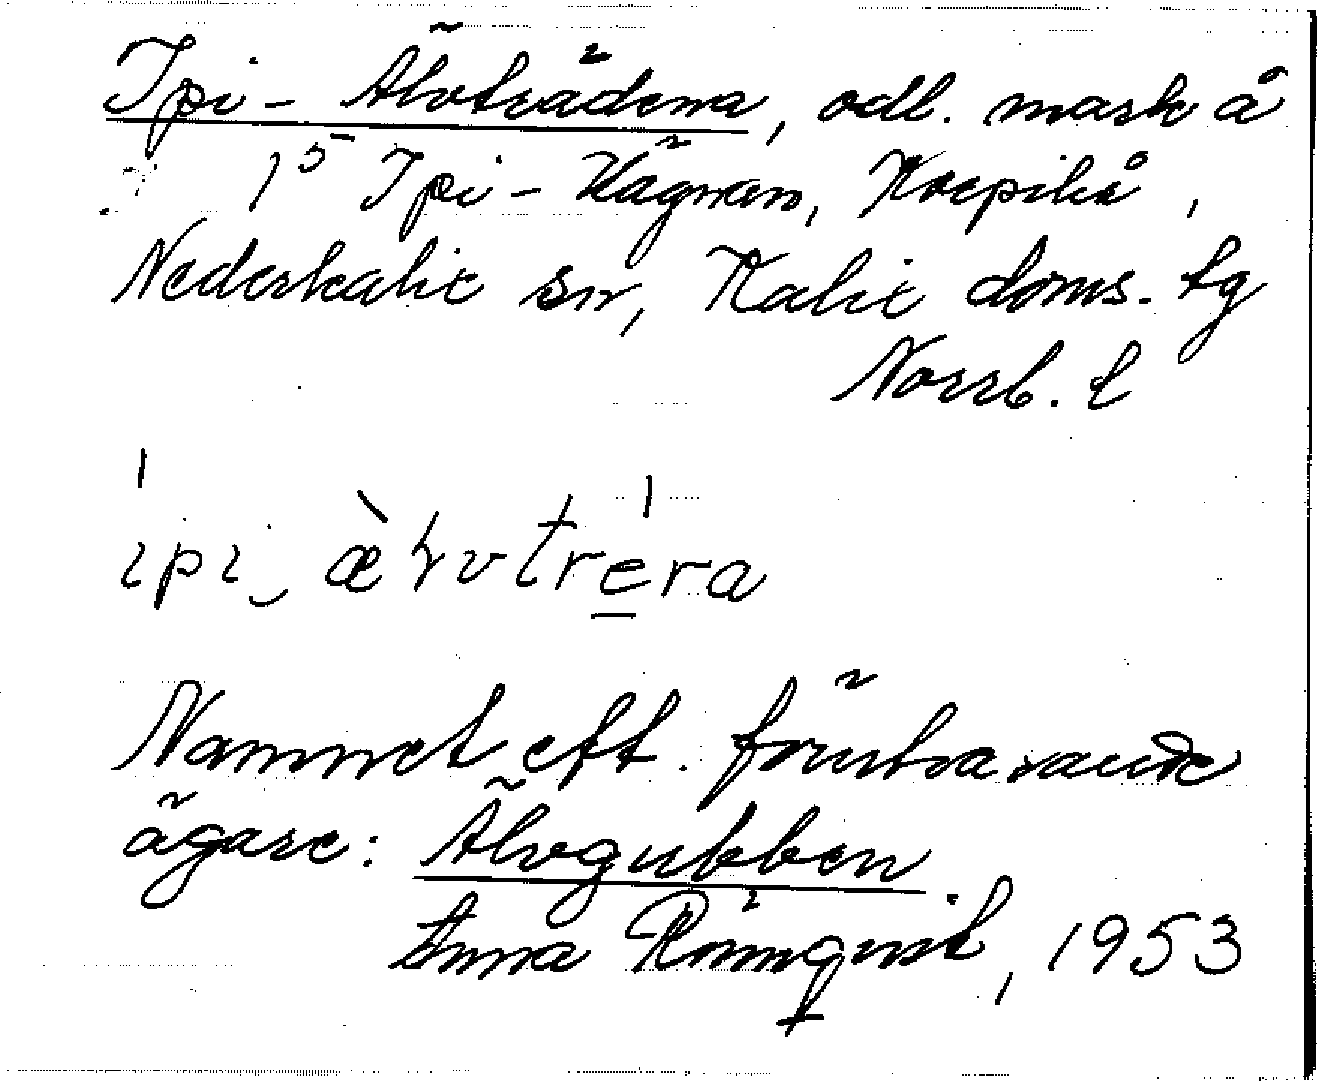 Ipi-Älvträdena, odl. mark å
1⁵ Ipi-Hägnan, Korpikå,
Nederkalix sn, Kalix doms. tg
Norrb. l
ipi‿æ̀ɽvtre̲ra
Namnet eft. förutvarande
ägare: Älvgubben.
Anna Rönnqvist, 1953